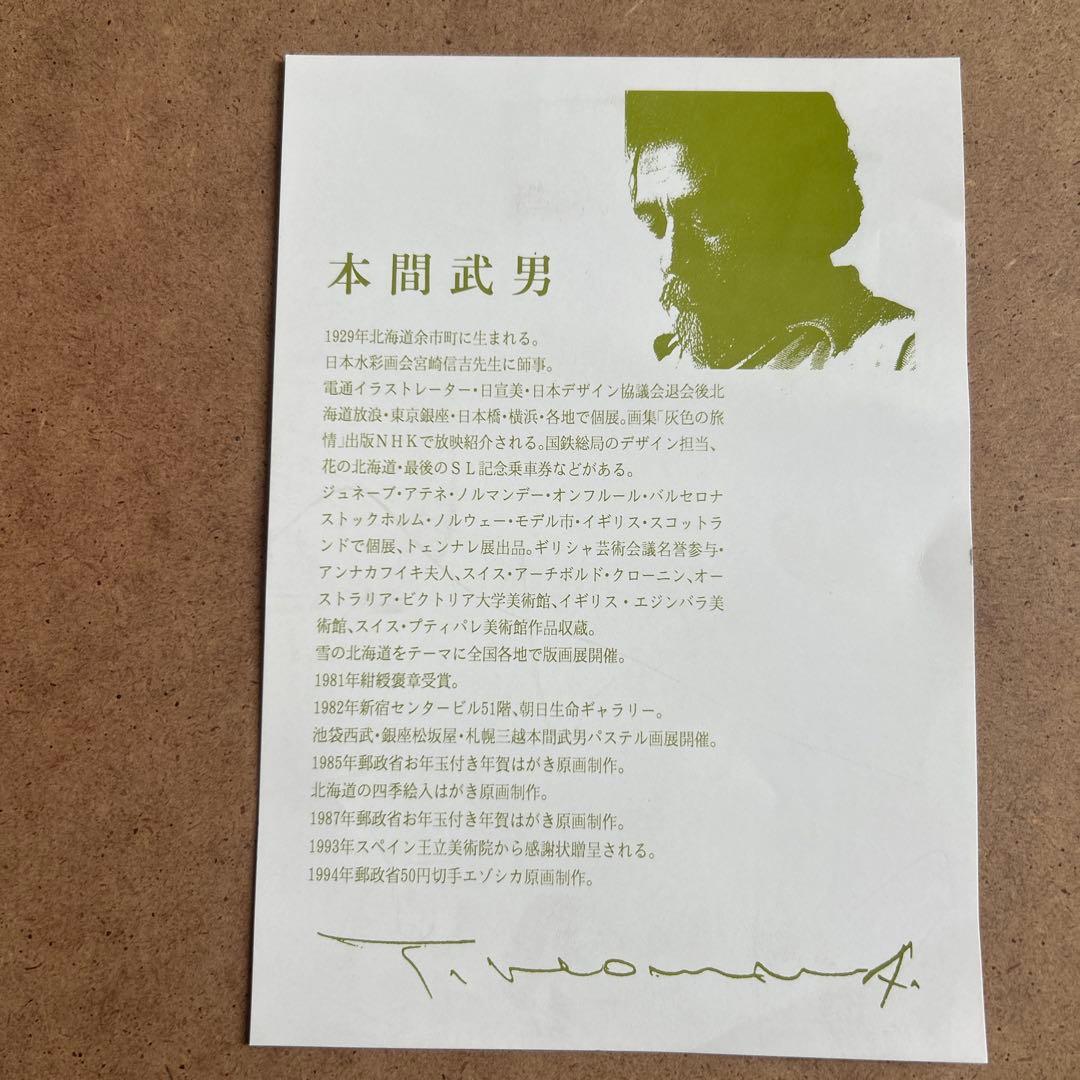 本間武男
1929年北海道余市町に生まれる。
日本水彩画会宮崎信吉先生に師事。
電通イラストレーター・日宣美・日本デザイン協議会退会後北
海道放浪・東京銀座・日本橋・横浜・各地で個展。画集「灰色の旅
情」出版NHKで放映紹介される。国鉄総局のデザイン担当、
花の北海道・最後のSL記念乗車券などがある。
ジュネーブ・アテネ・ノルマンデー・オンフルール・バルセロナ
ストックホルム・ノルウェー・モデル市・イギリス・スコットラ
ンドで個展、トェンナレ展出品。ギリシャ芸術会議名誉参与・
アンナカフイキ夫人、スイス・アーチボルド・クローニン、オー
ストラリア・ビクトリア大学美術館、イギリス・エジンバラ美
術館、スイス・プティパレ美術館作品収蔵。
雪の北海道をテーマに全国各地で版画展開催。
1981年紺綬褒章受賞。
1982年新宿センタービル51階、朝日生命ギャラリー。
池袋西武・銀座松坂屋・札幌三越本間武男パステル画展開催。
1985年郵政省お年玉付き年賀はがき原画制作。
北海道の四季絵入はがき原画制作。
1987年郵政省お年玉付き年賀はがき原画制作。
1993年スペイン王立美術院から感謝状贈呈される。
1994年郵政省50円切手エゾシカ原画制作。